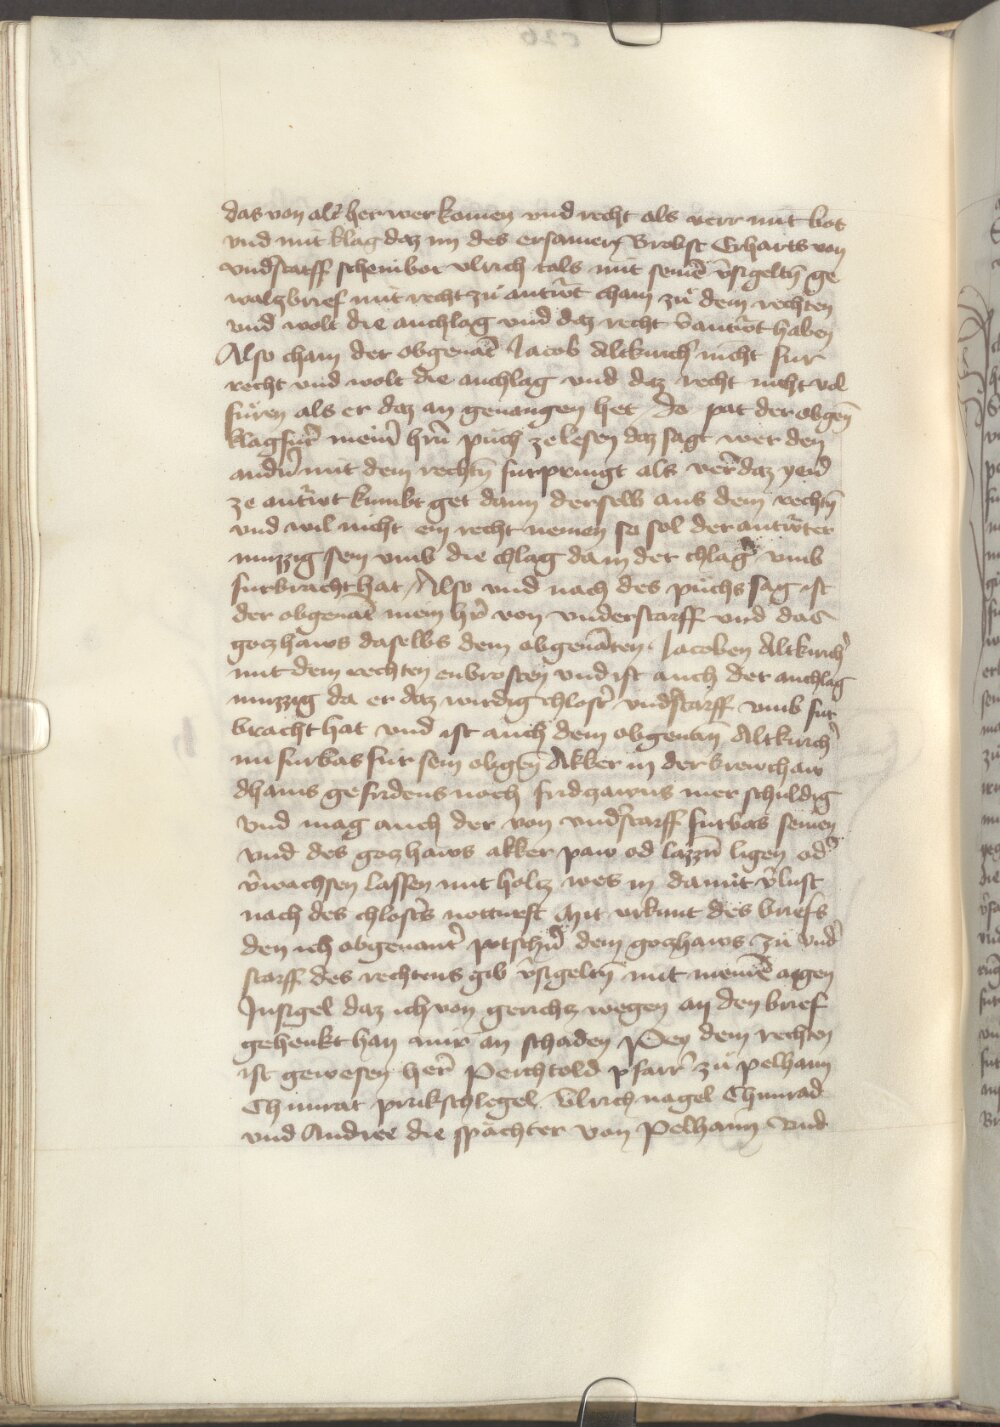 das von alt̃ her wer komen vnd recht als verr mit bot
vnd mit klag daz im des ersamen Brobst Erharts von
vnd̾starff scheinbot vlrich tals mit seinē v̾sigeltn̄ ge
walzbrief mit recht zů antw̾t cham zů dem rechten
vnd wolt die anchlag vnd daz recht v̾antw̾t haben
Also cham der obgenāt Jacob Altkircħ nicht fur
recht vnd wolt die anchlag vnd daz recht nicht vol
fůren als er daz an geuangen het Do pat der obgen̄
klagfur̾ mein̄ hrn̄ půch ze lesen daz sagt wer den
andn̾ mit dem rechtn̄ furpringt als verr daz yen̾
ze antw̾t kumbt get dann derselb aus dem rechtn̄
vnd wil nicht ein recht nemen so sol der antw̾ter
muzzig sein vmb die chlag da in der chlag̾ vmb
furbracht hat / Also vnd nach des půchs sag ist
der obgenāt mein hr̄ von vnderstarff vnd das
gozhaws daselbs dem obgenāten Jacoben Altkircħ
mit dem rechten enbrosten vnd ist auch der anchlag
muzzig da er daz wirdig chlost̾ vnd̾starff vmb fur
bracht hat vnd ist auch dem obgenān Altkircħ
nu furbas fur sein obgen̄ Akker in der brewchaw
dhains gefridens noch fridzawns mer schuldig
vnd mag auch der von vnd̾starff furbas seinen
vnd des gozhaws akker paw od lazzn̄ ligen od̾
v̾wachsen lassen mit holtz wes in damit v̾lust
nach des chlost̾s notturft Mit vrkunt des briefs
den ich obgenant̾ potschn̾ dem gozhaws zů vnd̾
starff des rechtens gib v̾sigeltn̄ mit meinē aigen
Jnsigel daz ich von gerichtz wegen an den brief
gehenkt han mir an schaden Pey dem rechten
ist gewesen her̾ Perchtold pfarr̾ zů pelhaim
Chunrat prukschlegel Vlrich nagel Chunrad
vnd Andree die spächter von Pelhaim Vnd